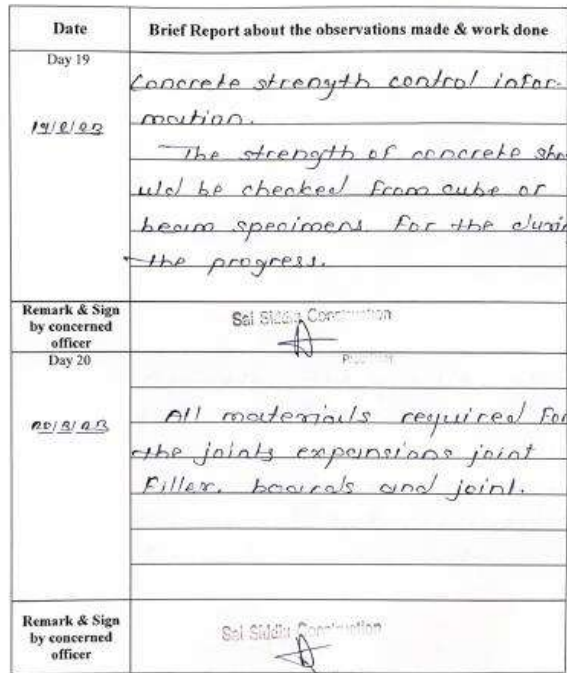 Date
Brief Report about the observations made & work done
Day 19
Concrete strength control infor-
mation.
The strength of concrete sho
uld be checked from cube or
beam specimens for the during
the progress.
Remark & Sign
by concerned
officer
Sai Siddhi Construction
Day 20
All materials required for
the joints expansions joint
filler. boards and joint.
Remark & Sign
by concerned
officer
Sai Siddhi Construction